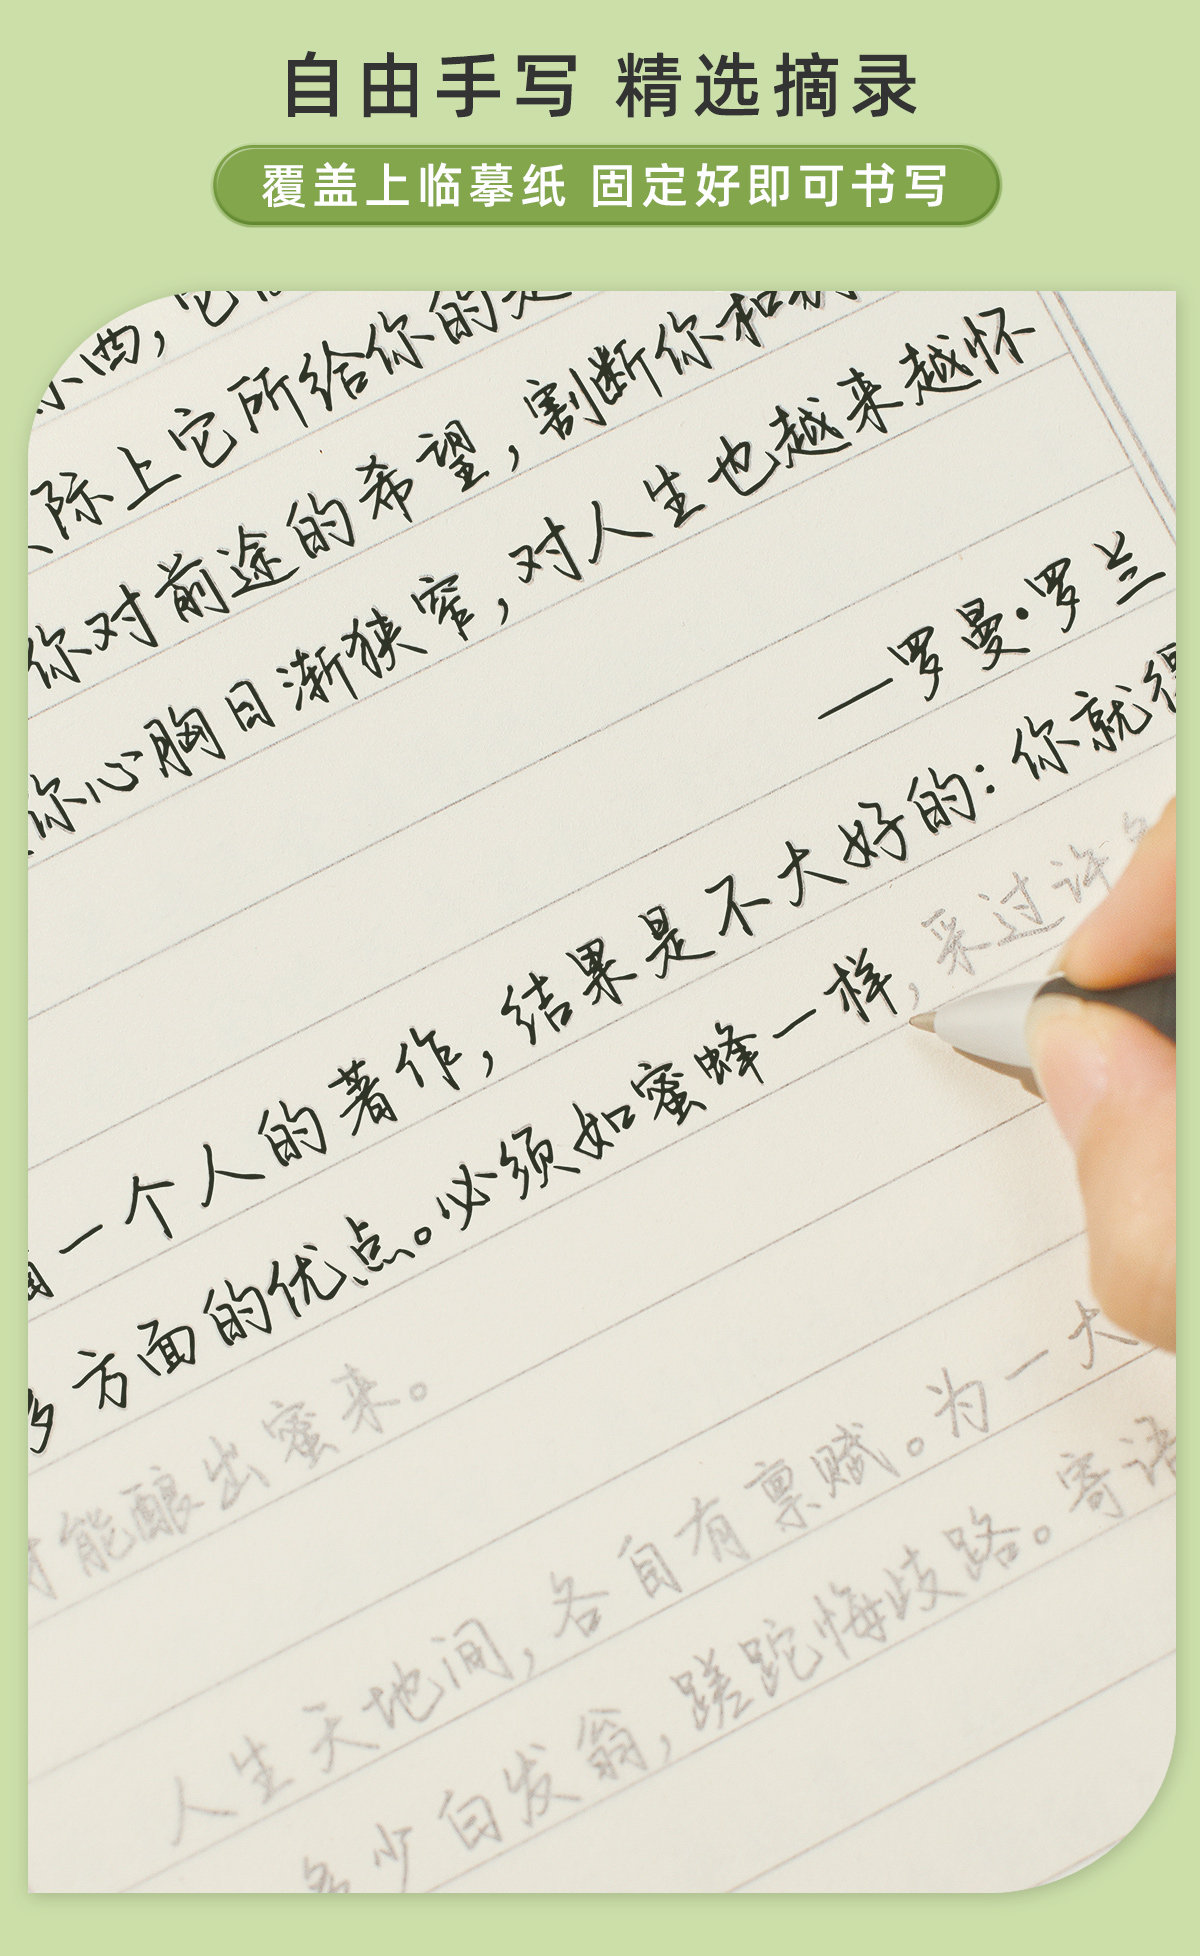 自由手写 精选摘录
覆盖上临摹纸 固定好即可书写
西，它
实际上它所给你的是
你对前途的希望，割断你和
你心胸日渐狭窄，对人生也越来越怀
—罗曼·罗兰
一个人的著作，结果是不大好的：你就得
多方面的优点。必须如蜜蜂一样，采过许
才能酿出蜜来。
人生天地间，各自有禀赋。为一大
多少白发翁，蹉跎悔歧路。寄语